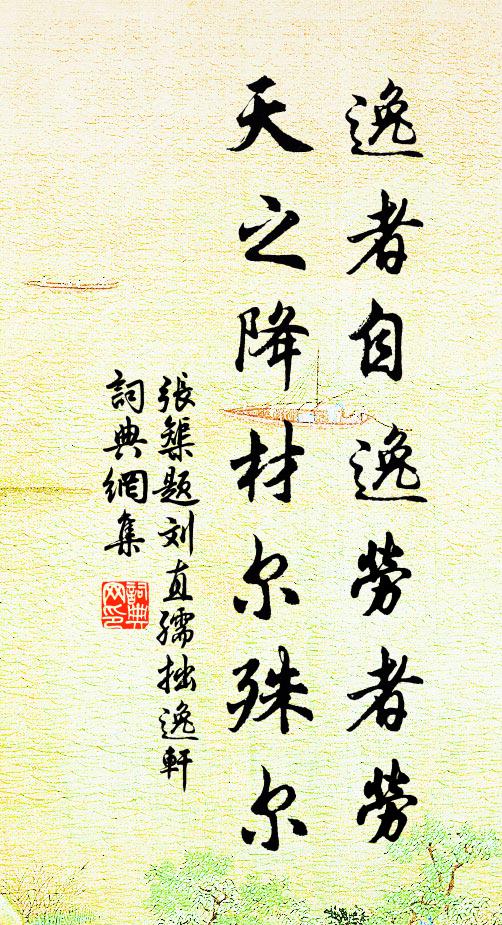 逸者自逸勞者勞
天之降材尔殊尔
張榘题刘直孺拙逸軒
詞典網集
詞典
网印